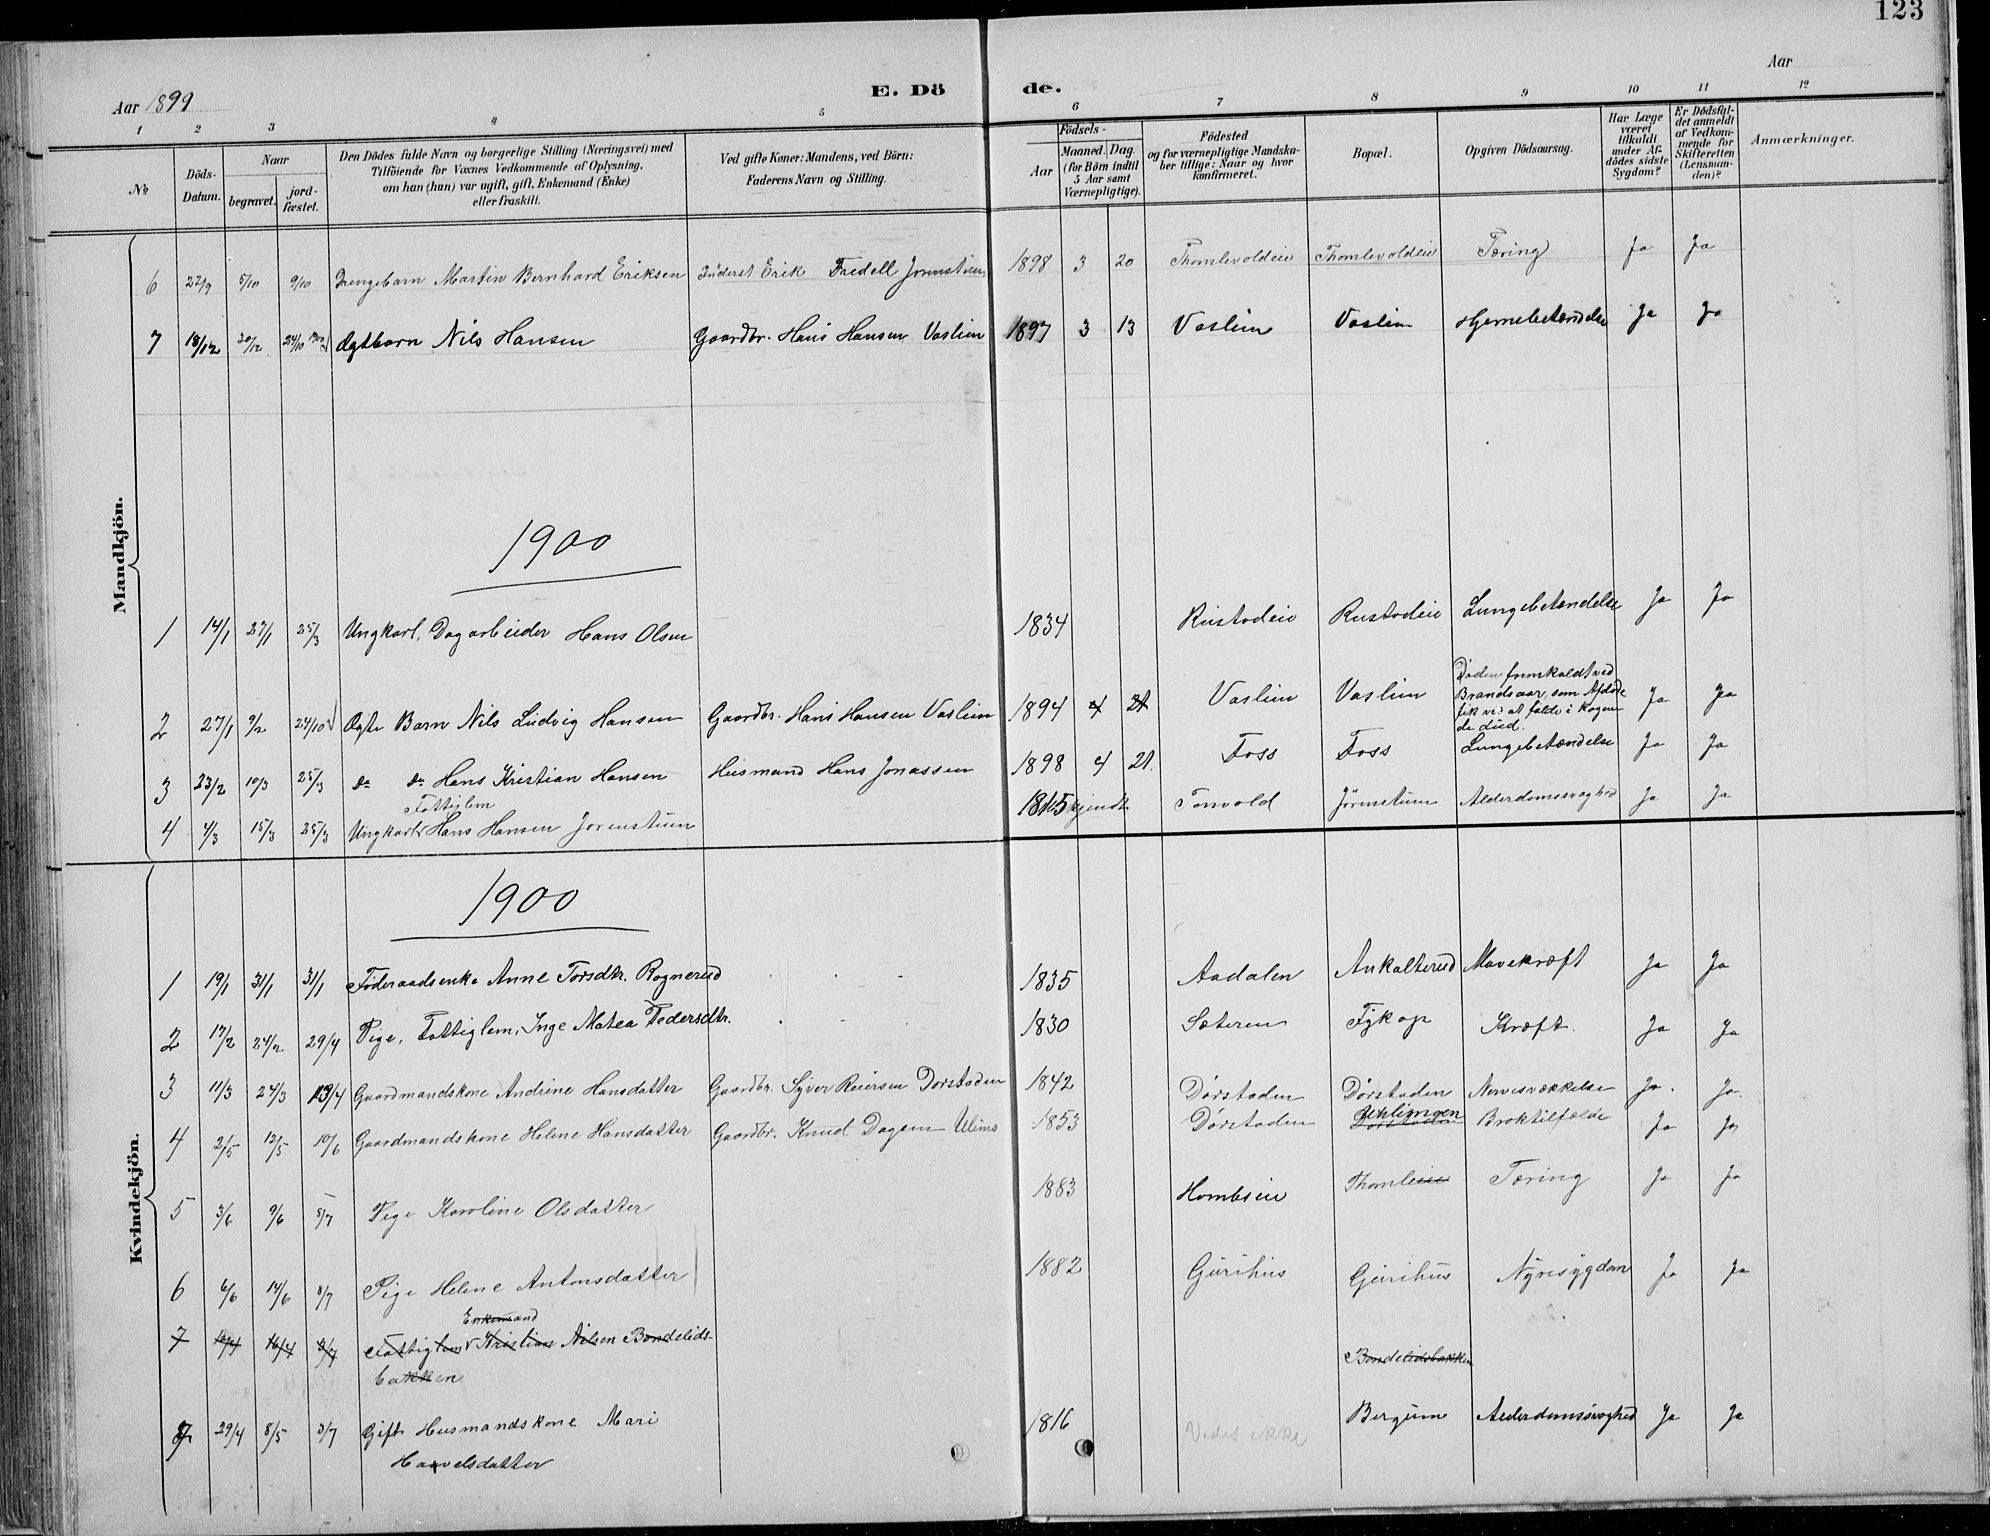 123
Aar 1899
E. Dö
de.
Aar
1 2 3 4 5 6 7 8 9 10 11 12
No
Döds-Datum.
Naar
begravet.
jord-fæstet.
Den Dödes fulde Navn og borgerlige Stilling (Næringsvei) med
Tilföiende for Voxnes Vedkommende af Oplysning,
om han (hun) var ugift, gift, Enkemand (Enke)
eller fraskilt.
Ved gifte Koner: Mandens, ved Börn:
Faderens Navn og Stilling.
Födsels-
Aar
Maaned. Dag.
(for Börn indtil
5 Aar samt
Værnepligtige).
Födested
og for værnepligtige Mandska-
ber tillige: Naar og hvor
konfirmeret.
Bopæl.
Opgiven Dödsaarsag.
Har Læge
været
tilkaldt
under Af-
dödes sidste
Sygdom?
Er Dödsfal-
det anmeldt
af Vedkom-
mende for
Skifteretten
(Lensman-
den)?
Anmærkninger.
Mandkjön.
6 22/9 5/10 9/10 Drengebarn Martin Bernhard Eriksen Inderst Erik Fredell Jørnstuen 1898 3 20 Thomlevoldeie Thomlevoldeie Tæring Ja Ja
7 18/12 30/12 24/10 Ægtbarn Nils Hansen Gaardbr. Hans Hansen Vaslien 1897 3 13 Vaslien Vaslien Hjernebetændelse Ja Ja
1900
1 14/1 27/1 25/3 Ungkarl, Dagarbeider Hans Olsen 1834 Rustadeie Rustadeie Lungebetændelse Ja Ja
2 27/1 9/2 24/10 Ægte Barn Nils Ludvig Hansen Gaardbr. Hans Hansen Vaslien 1894 4 21 Vaslien Vaslien Døden fremkaldt ved
Brandsaar, som Afdøde
fik ved at falde i kogen
de Lud. Ja Ja
3 23/2 10/3 25/3 do do Hans Kristian Hansen Husmand Hans Jonassen 1898 4 21. Foss Foss Lungebetændelse Ja Ja
Fattiglem
4 4/3 15/3 25/3 Ungkarl Hans Hansen Jørenstuen 1815 Tonvold Jörenstuen Alderdomssvaghed Ja Ja
Kvindekjön.
1900
1 19/1 31/1 31/1 Föderaadsenke Anne Torsdtr. Rognerud 1835 Aadalen Ankalterud Mavekræft Ja Ja
2 17/2 24/2 29/4 Pige, Fattiglem, Inge Matea Pedersdtr. 1830 Sæteren Fjkop Kræft. Ja Ja
3 11/3 24/3 13/4 Gaardmandskone Andrine Hansdatter Gaardbr. Syver Reiersen Dorstaden 1842 Dørstaden Dørstaden Nervesvækkelse Ja. Ja.
4 2/5 12/5 10/6 Gaardmandskone Helene Hansdatter Gaardbr. Knud Dagsen Ulims 1853 Dørstaden Dørstaden Broktilfælde Ja Ja
5 3/6 9/6 8/7 Pige Karoline Olsdatter 1883 Hombseie Thomleeie Tæring Ja Ja
6 6/6 14/6 8/7 Pige Helene Antonsdatter 1882 Gurihus Gurihus Nyresygdom Ja Ja
Enkemand
7 16/4 Fattiglem Kristian Nilsen Bondelids-
bakken Bondelidsbakken
8 29/4 8/5 3/7 Gift Husmandskone Mari
Haavelsdatter 1816 Vides ikke Bergum Alderdomssvaghed Ja Ja